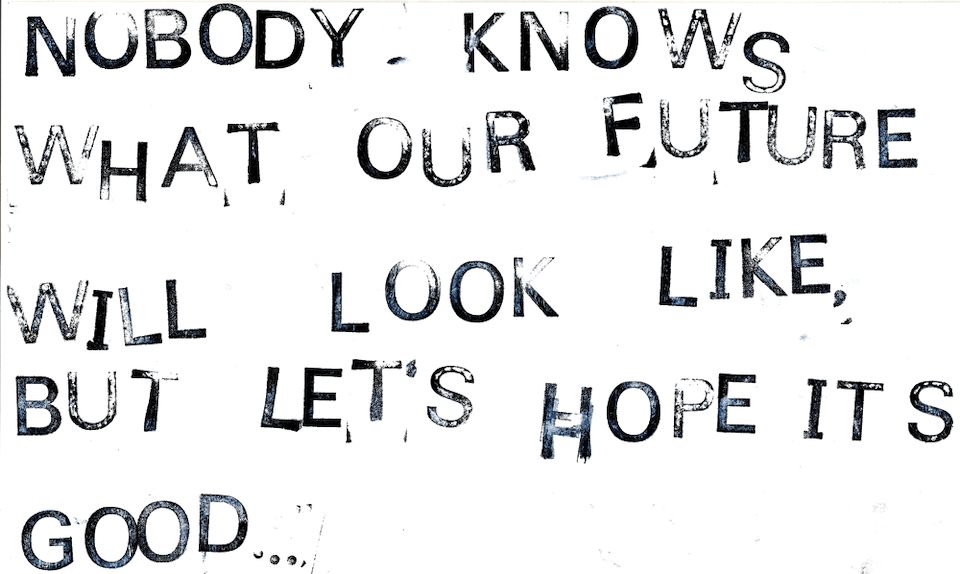 NOBODY KNOWS
WHAT OUR FUTURE
WILL LOOK LIKE,
BUT LET'S HOPE ITS
GOOD...